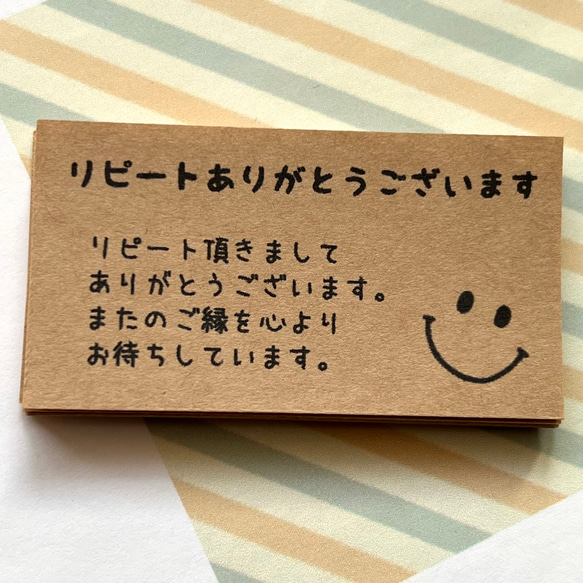 リピートありがとうございます
リピート頂きまして
ありがとうございます。
またのご縁を心より
お待ちしています。